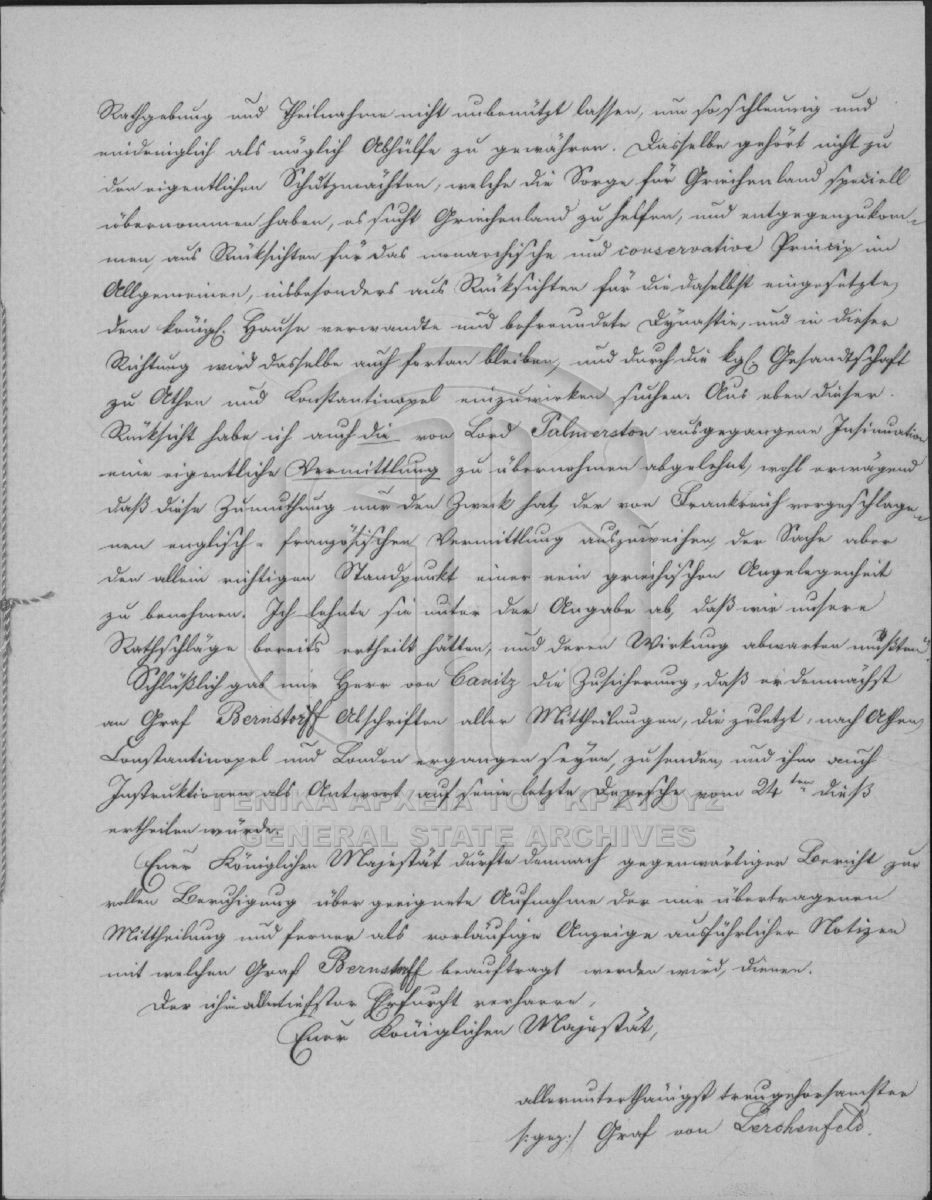 Rathgebung und Theilnahme nicht unbenützt lassen, um so schleunig und
eindringlich als möglich Abhülfe zu gewähren. Dasselbe gehört nicht zu
den eigentlichen Schutzmächten, welche die Sorge für Griechenland speciell
übernommen haben, es sucht Griechenland zu helfen, und entgegenzukom-
men, aus Rücksichten für das monarchische und conservative Princip im
Allgemeinen, insbesonders aus Rücksichten für die daselbst eingesetzte,
dem königl. Hause verwandte und befreundete Dynastie, und in dieser
Richtung wird dasselbe auch fortan bleiben, und durch die kgl. Gesandtschaft
zu Athen und Konstantinopel einzuwirken suchen. Aus eben dieser
Rücksicht habe ich auch die von Lord Palmerston ausgegangene Insinuation
eine eigentliche Vermittlung zu übernehmen abgelehnt, wohl erwägend
daß diese Zumuthung nur den Zweck hat, der von Frankreich vorgeschlage-
nen englisch-französischen Vermittlung auszuweichen, der Sache aber
den allein richtigen Standpunkt einer rein griechischen Angelegenheit
zu benehmen. Ich lehnte sie unter der Angabe ab, daß wir unsere
Rathschläge bereits ertheilt hätten, und deren Wirkung abwarten müßten."
Schlüßlich gab mir Herr von Canitz die Zusicherung, daß er demnächst
an Graf Bernstorff Abschriften aller Mittheilungen, die zuletzt nach Athen,
Constantinopel und London ergangen seyen, zusenden, und ihm auch
Instruktionen als Antwort auf seine letzte Depesche vom 24ten dieß
ertheilen würde.
Euer Königlichen Majestät dürfte demnach gegenwärtiger Bericht zur
vollen Beruhigung über geeignete Aufnahme der mir übertragenen
Mittheilung und ferner als vorläufige Anzeige ausführlicher Notizen
mit welchen Graf Bernstorff beauftragt werden wird, dienen.
Der ich in allertiefster Erfurcht verharre,
Euer Königlichen Majestät,
allerunterthänigst treugehorsamster
/:gez:/ Graf von Lerchenfeld.
ΓΕΝΙΚΑ ΑΡΧΕΙΑ ΤΟΥ ΚΡΑΤΟΥΣ
GENERAL STATE ARCHIVES